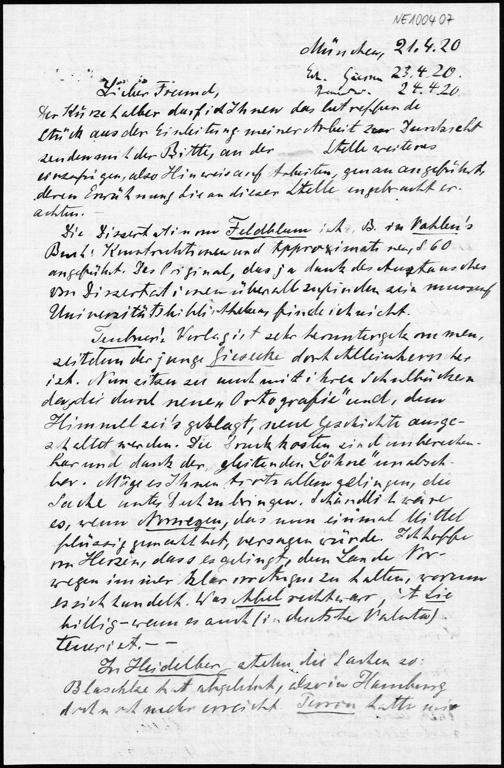 NE100407
München, 21.4.20
23.4.20.
24.4.20.
Lieber Freund,
Der Kürze halber darf ich Ihnen das betreffende
Stück aus der Einleitung meiner Arbeit zur Durchsicht
senden mit der Bitte, an der Stelle weiteres
einzufügen, also Hinweis auf Arbeiten, genau angeführt,
deren Erwähnung Sie an dieser Stelle angebracht er-
achten.
Die Dissertation von Feldblum ist z. B. in Vahlen's
Buch: Konstruktionen und Approximationen, § 60
angeführt. Das Original, das ja dank des Austausches
von Dissertationen überall zu finden sein muss auf
Universitätsbibliotheken, finde ich nicht.
Teubner's Verlag ist sehr heruntergekommen,
seitdem der junge Giesecke dort Alleinherrscher
ist. Nun sitzen sie auch mit ihren Schulbüchern
da, die durch neue „Ortografie" und, dem
Himmel sei's geklagt, neue Geschichte ausge-
schaltet werden. Die Druckkosten sind unberechen-
bar und dank der „gleitenden Löhne" unabseh-
bar. Möge es Ihnen trotz allem gelingen, die
Sache unter Dach zu bringen. Schändlich wäre
es, wenn Norwegen, das nun einmal Mittel
flüssig gemacht hat, versagen würde. Ich hoffe
von Herzen, dass es gelingt, dem Lande Nor-
wegen immer klar vor Augen zu halten, worum
es sich handelt. Was Abel recht war, ist Lie
billig – wenn es auch (in deutscher Valuta)
teuer ist. –
In Heidelberg stehn die Sachen so:
Blaschke hat abgelehnt, da er in Hamburg
doch noch mehr erreicht. Perron hatte mir